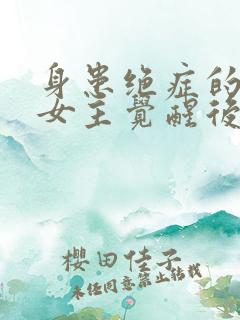 身患绝症的
女主觉醒后
樱田佳子
未经同意禁止转载